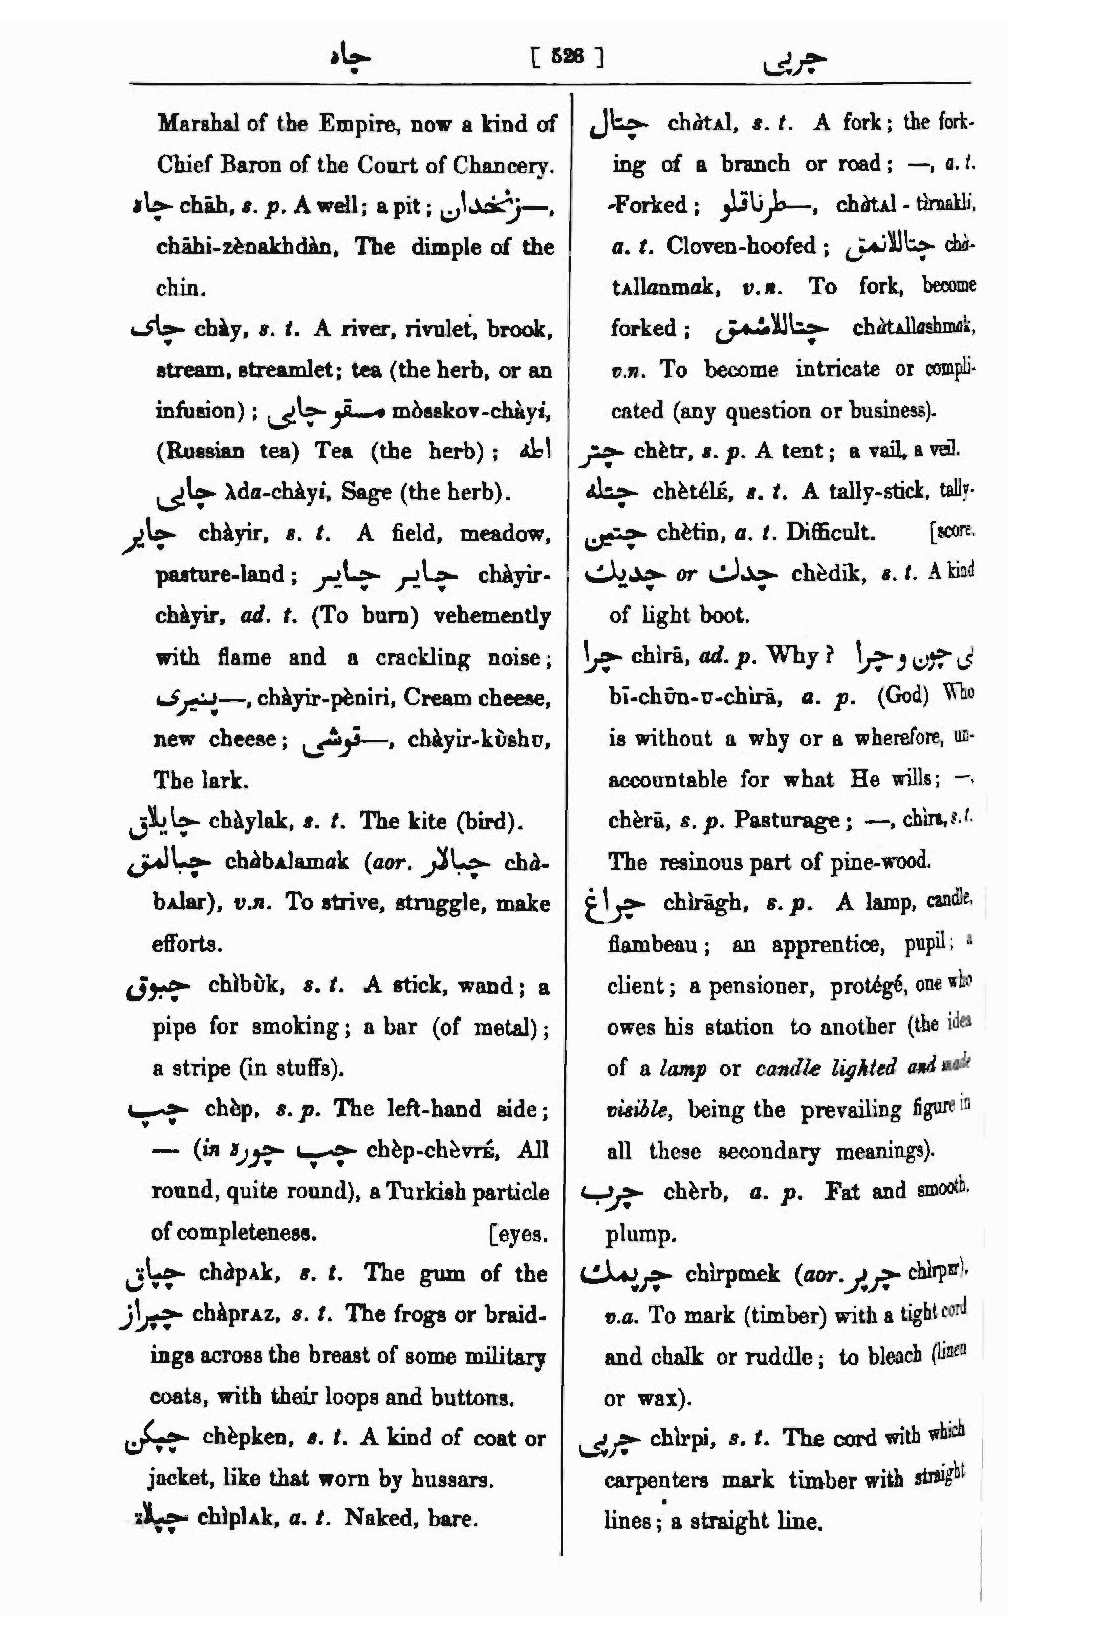 چاه [ 526 ] چرپی
Marshal of the Empire, now a kind of
Chief Baron of the Court of Chancery.
چاه chāh, s. p. A well; a pit; زنخدان—,
chāhi-zènakhdàn, The dimple of the
chin.
چای chày, s. t. A river, rivulet, brook,
stream, streamlet; tea (the herb, or an
infusion); مسقو چایی mòsskov-chàyi,
(Russian tea) Tea (the herb); اطه
چایی λda-chàyi, Sage (the herb).
چایر chàyir, s. t. A field, meadow,
pasture-land; چایر چایر chàyir-
chàyir, ad. t. (To burn) vehemently
with flame and a crackling noise;
پنیری—, chàyir-pèniri, Cream cheese,
new cheese; قوشی—, chàyir-kùshʊ,
The lark.
چایلاق chàylak, s. t. The kite (bird).
چبالمق chàbᴀlamak (aor. چبالار chà-
bᴀlar), v.n. To strive, struggle, make
efforts.
چبوق chìbùk, s. t. A stick, wand; a
pipe for smoking; a bar (of metal);
a stripe (in stuffs).
چپ chèp, s. p. The left-hand side;
— (in چپ چوره chèp-chèvrÉ, All
round, quite round), a Turkish particle
of completeness. [eyes.
چپاق chàpᴀk, s. t. The gum of the
چپراز chàprᴀz, s. t. The frogs or braid-
ings across the breast of some military
coats, with their loops and buttons.
چپكن chèpken, s. t. A kind of coat or
jacket, like that worn by hussars.
چپلاق chìplᴀk, a. t. Naked, bare.
چتال chàtᴀl, s. t. A fork; the fork-
ing of a branch or road; —, a. t.
Forked; طرناقلو—, chàtᴀl-tìrnakli,
a. t. Cloven-hoofed; چتاللانمق chà-
tᴀllanmak, v.n. To fork, become
forked; چتاللاشمق chàtᴀllashmak,
v.n. To become intricate or compli-
cated (any question or business).
چتر chètr, s. p. A tent; a vail, a veil.
چتله chètélÉ, s. t. A tally-stick, tally-
چتین chètin, a. t. Difficult. [score.
چدیك or چدك chèdik, s. t. A kind
of light boot.
چرا chìrā, ad. p. Why? بی چون و چرا
bī-chūn-ʊ-chìrā, a. p. (God) Who
is without a why or a wherefore, un-
accountable for what He wills; —,
chèrā, s. p. Pasturage; —, chìra, s. t.
The resinous part of pine-wood.
چراغ chìrāgh, s. p. A lamp, candle,
flambeau; an apprentice, pupil; a
client; a pensioner, protégé, one who
owes his station to another (the idea
of a lamp or candle lighted and made
visible, being the prevailing figure in
all these secondary meanings).
چرب chèrb, a. p. Fat and smooth,
plump.
چرپمك chìrpmek (aor. چرپر chìrpɪr),
v.a. To mark (timber) with a tight cord
and chalk or ruddle; to bleach (linen
or wax).
چرپی chìrpi, s. t. The cord with which
carpenters mark timber with straight
lines; a straight line.